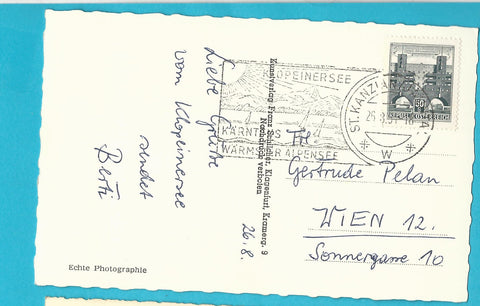 Liebe Grüße
vom Klopeinersee
sendet
Berti
26.8.
Kunstverlag Franz Schilcher, Klagenfurt, Kramerg. 9
Nachdruck verboten
Echte Photographie
KLOPEINERSEE
KÄRNTENS
WÄRMSTER ALPENSEE
ST. KANZIAN
50
REPUBLIK ÖSTERREICH
Frl.
Gertrude Pelan
WIEN 12.
Sonnergasse 10